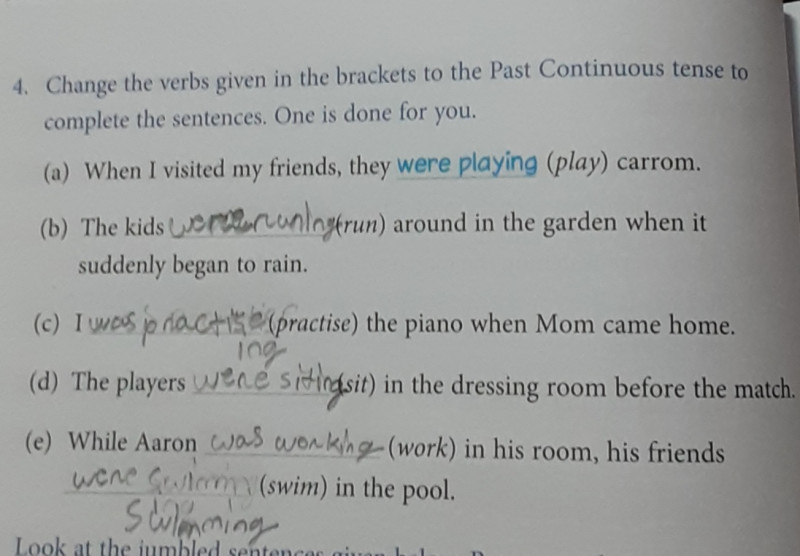 4. Change the verbs given in the brackets to the Past Continuous tense to
complete the sentences. One is done for you.
(a) When I visited my friends, they were playing (play) carrom.
(b) The kids were runing (run) around in the garden when it
suddenly began to rain.
(c) I was practise (practise) the piano when Mom came home.
ing
(d) The players were siting (sit) in the dressing room before the match.
(e) While Aaron was working (work) in his room, his friends
were (swim) in the pool.
swimming
Look at the jumbled sentences given